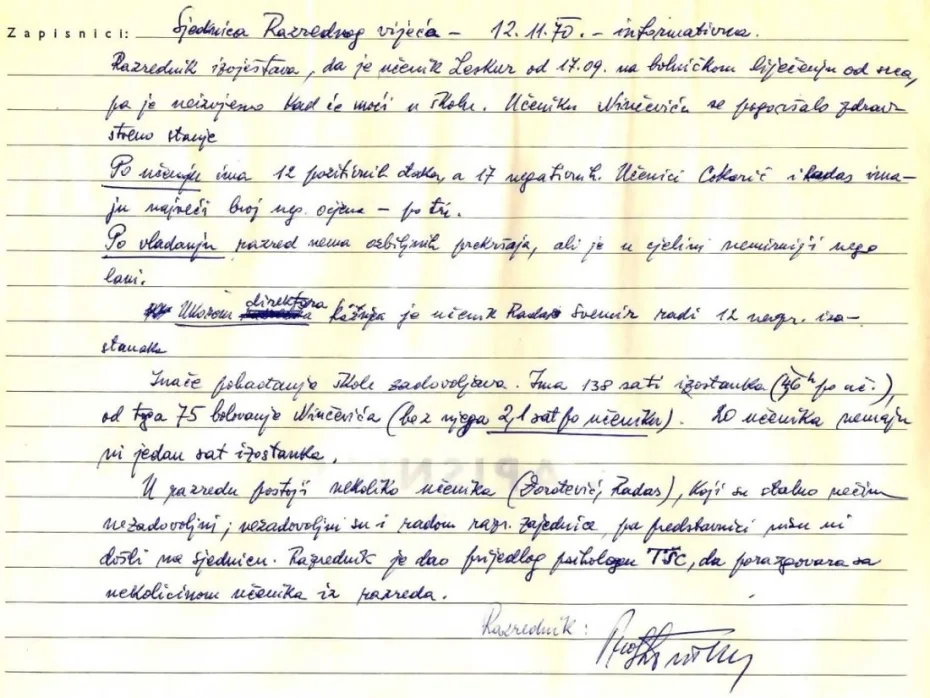 Zapisnici: Sjednica Razrednog vijeća – 12.11.70. – informativna.
Razrednik izvještava, da je učenik Leskur od 17.09. na bolničkom liječenju od
pa je neizvjesno kad će moći u školu. Učeniku Ninčeviću se pogoršalo zdrav-
stveno stanje
Po učenju ima 12 pozitivnih đaka, a 17 negativnih. Učenici Cokarić i Radas ima-
ju najveći broj neg. ocjena – po tri.
Po vladanju razred nema ozbiljnih prekršaja, ali je u cjelini nemirniji nego
lani.
Ukorom direktora kažnjen je učenik Radas Svemir radi 12 neopr. izo-
stanaka
Inače pohađanje škole zadovoljava. Ima 138 sati izostanka (4,6 h po uč.),
od toga 75 bolovanje Ninčevića (bez njega 2,1 sat po učeniku). 20 učenika nemaju
ni jedan sat izostanka.
U razredu postoji nekoliko učenika (Dorotević, Radas), koji su stalno nečim
nezadovoljni; nezadovoljni su i radom razr. zajednice, pa predstavnici nisu ni
došli na sjednicu. Razrednik je dao prijedlog psihologu TŠC, da porazgovara sa
nekolicinom učenika iz razreda.
Razrednik: